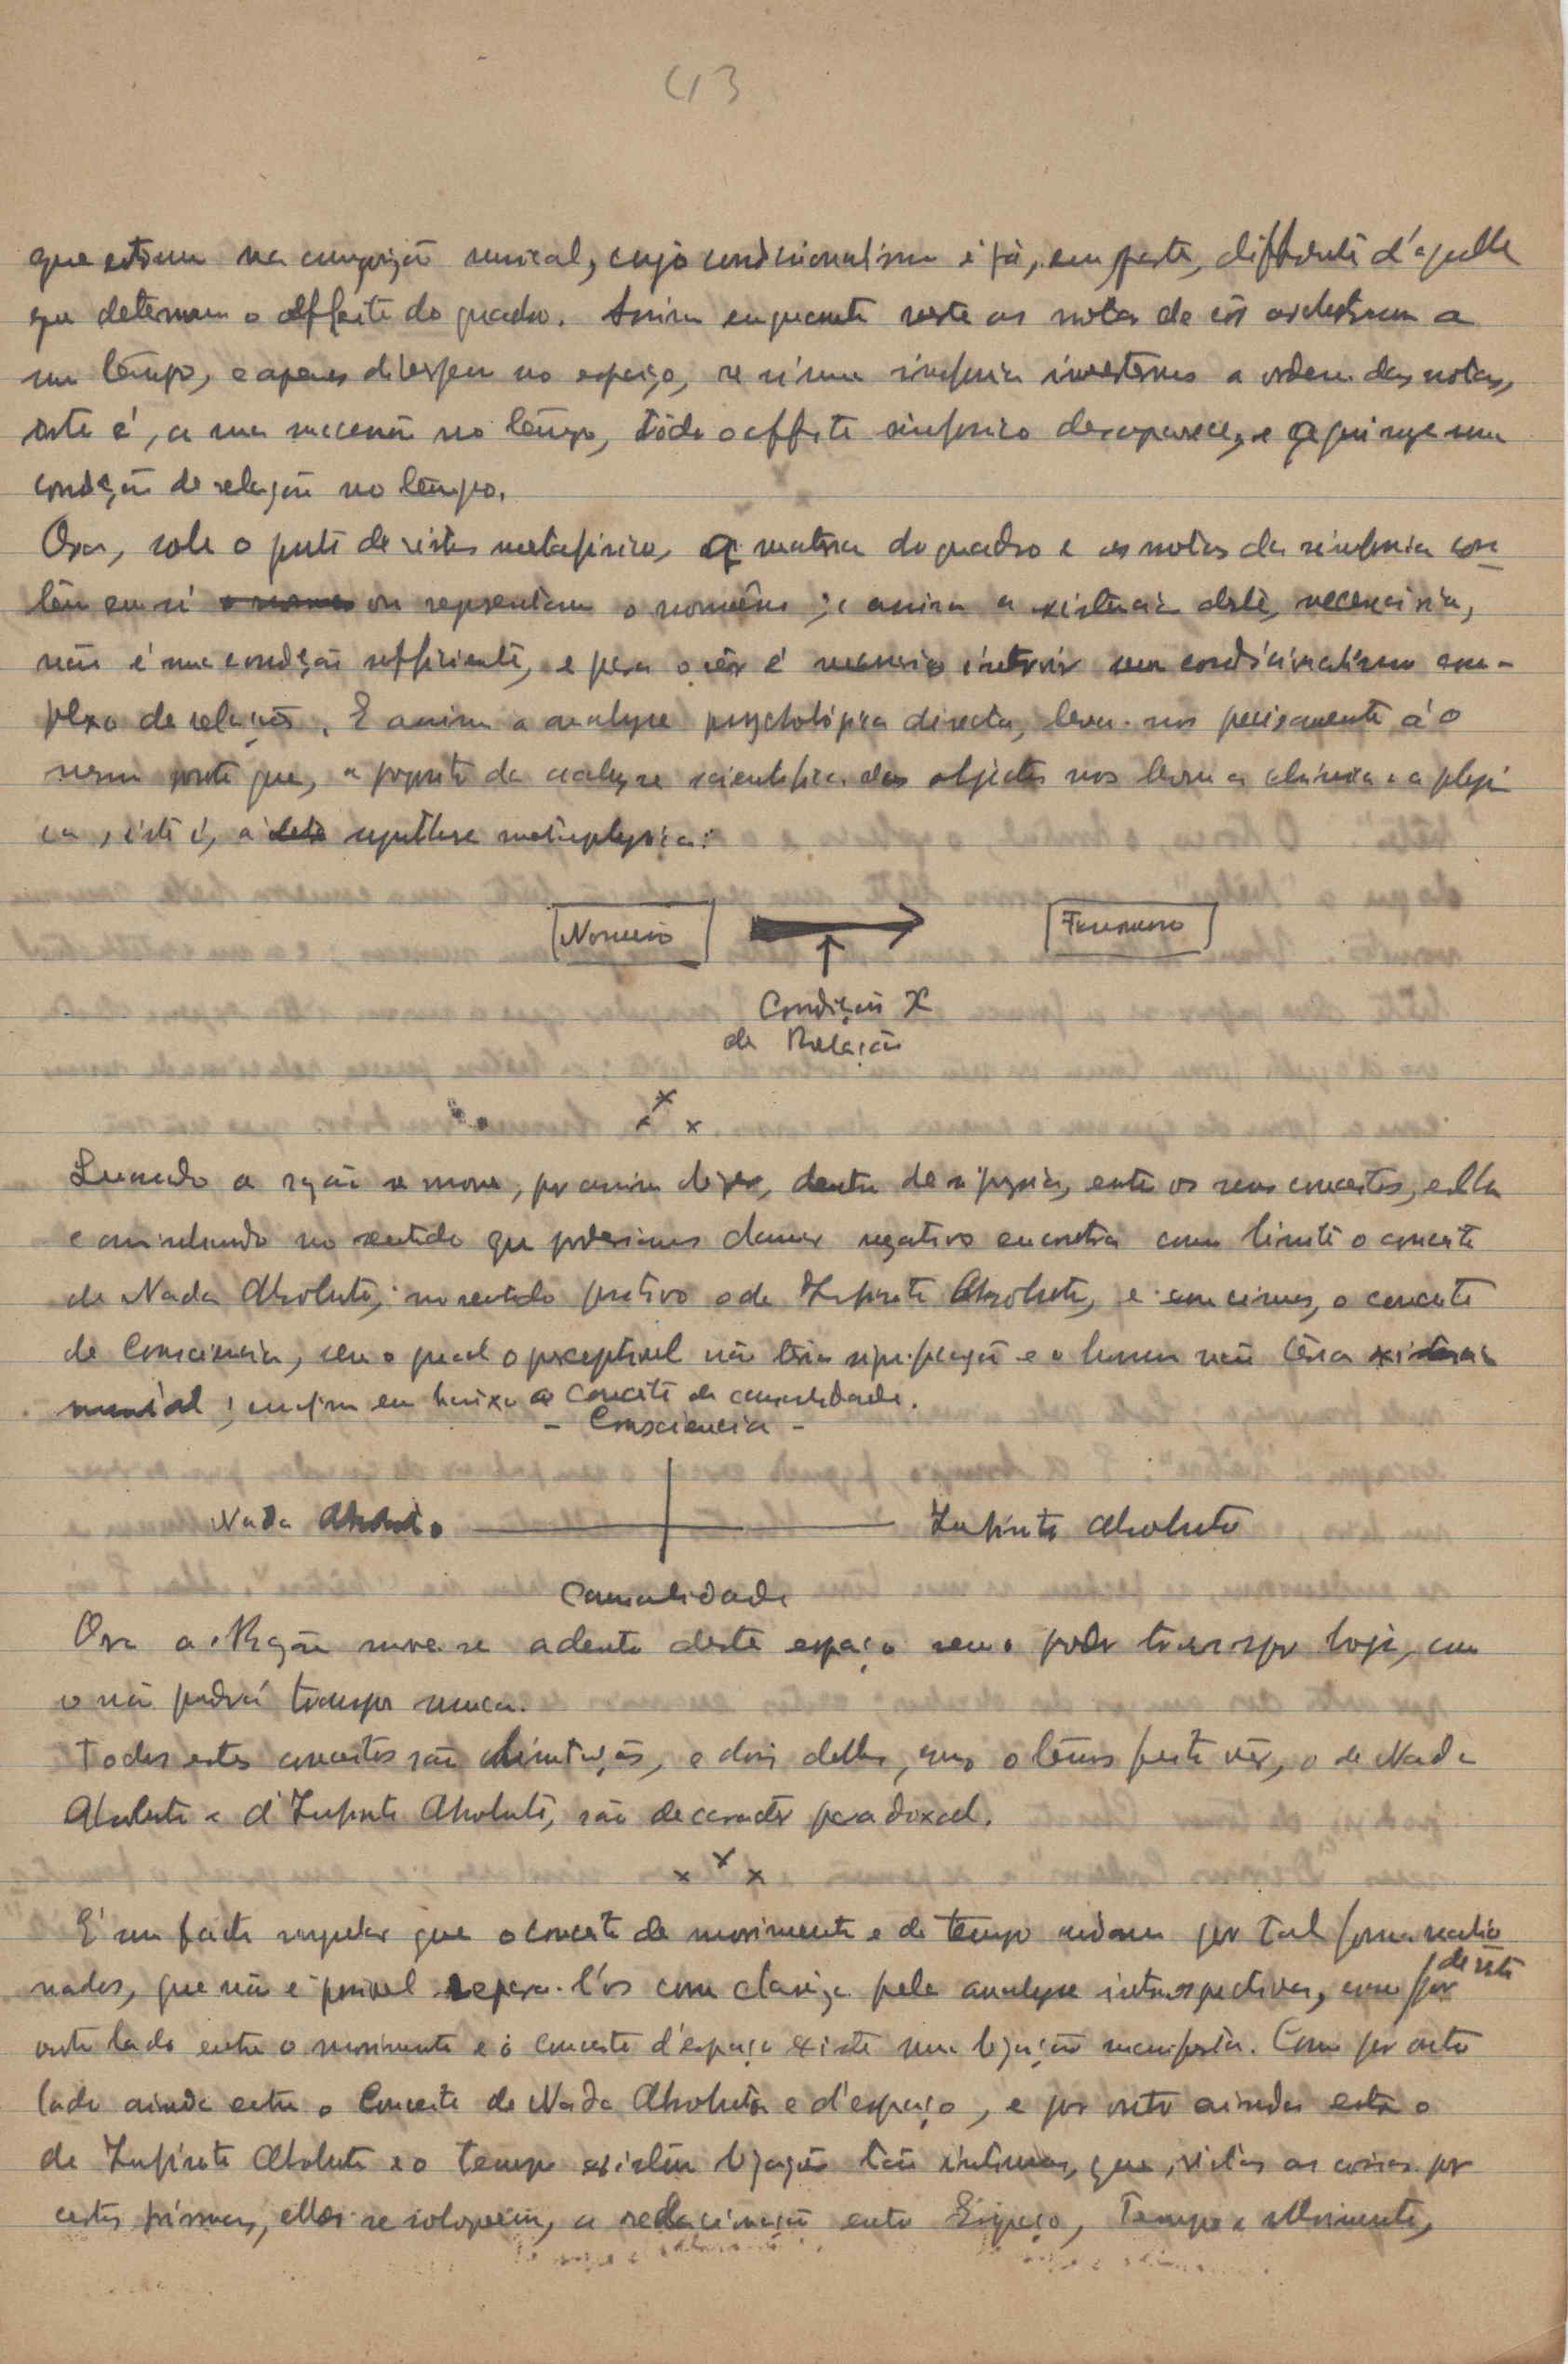 43
que na composição musical, cujo condicionalismo é já, em parte, differente d'aquelle
que determina o effeito do quadro. Assim enquanto neste as notas de côr orchestram a
um tempo, e apenas divergem no espaço, se n'uma sinfonia invertermos a ordem das notas,
isto é, a sua successão no tempo, tôdo o effeito sinfonico desapparece, e aqui surge uma
condição de relação no tempo.
Ora, sob o ponto de vista metafisico, a materia do quadro e as notas da sinfonia con
têm em si ou representam o noumêno; e assim a existencia deste, necessaria,
não é uma condição sufficiente, e para o sêr é necessario intervir um condicionalismo com-
plexo de relações. E assim a analyse psychologica directa, leva-nos precisamente á o
mesmo ponto que, a proposito da analyse scientifica dos objectos nos levou a chimica e a physi
ca, isto é, á synthese metaphysica:
Noumeno
Fenomeno
Condição X
de Relação
x x x
Quando a razão se move, por assim dizer, dentro de si propria, entre os seus conceitos, ella
caminhando no sentido que poderiamos chamar negativo encontra como limite o conceito
de Nada Absoluto; no sentido positivo o de Infinito Absoluto, e em cima, o conceito
de Consciencia, sem o qual o perceptivel não teria significação e o homem não teria existencia
; emfim em baixo o conceito de causalidade.
- Consciencia -
Nada Absoluto
Infinito Absoluto
Causalidade
Ora a Razão move-se adentro deste espaço sem o poder transpor hoje, como
o não poderá transpor nunca.
Todos estes conceitos são limitações, e dois delles, como o temos feito vêr, o de Nada
Absoluto e d'Infinito Absoluto, são de caracter paradoxal.
x x x
E' um facto singular que o conceito de movimento e de tempo por tal forma relacio
nados, que não é possivel separa-l'os com clareza pela analyse introspectiva, como por
deste
outro lado entre o movimento e o conceito d'espaço existe uma ligação manifesta. Como por outro
lado ainda entre o Conceito de Nada Absoluto e d'espaço, e por outro ainda entre o
de Infinito Absoluto e o tempo existem ligações tão intimas, que, vistas as coisas por
certos prismas, elles se, a relacionação entre Espaço, Tempo e Movimento,